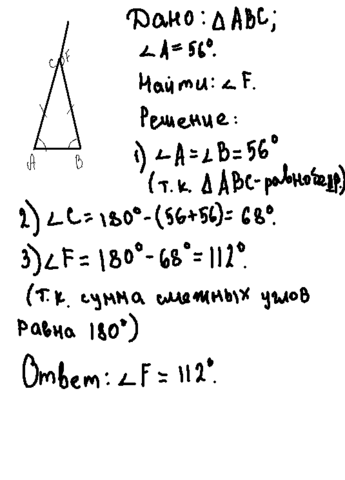 Дано: △ABC;
∠A=56°.
Найти: ∠F.
Решение:
C F
A B
1) ∠A=∠B=56°
(т.к. △ABC-равнобедр)
2) ∠C=180°-(56+56)=68°.
3) ∠F=180°-68°=112°.
(т.к. сумма смежных углов
равна 180°)
Ответ: ∠F=112°.